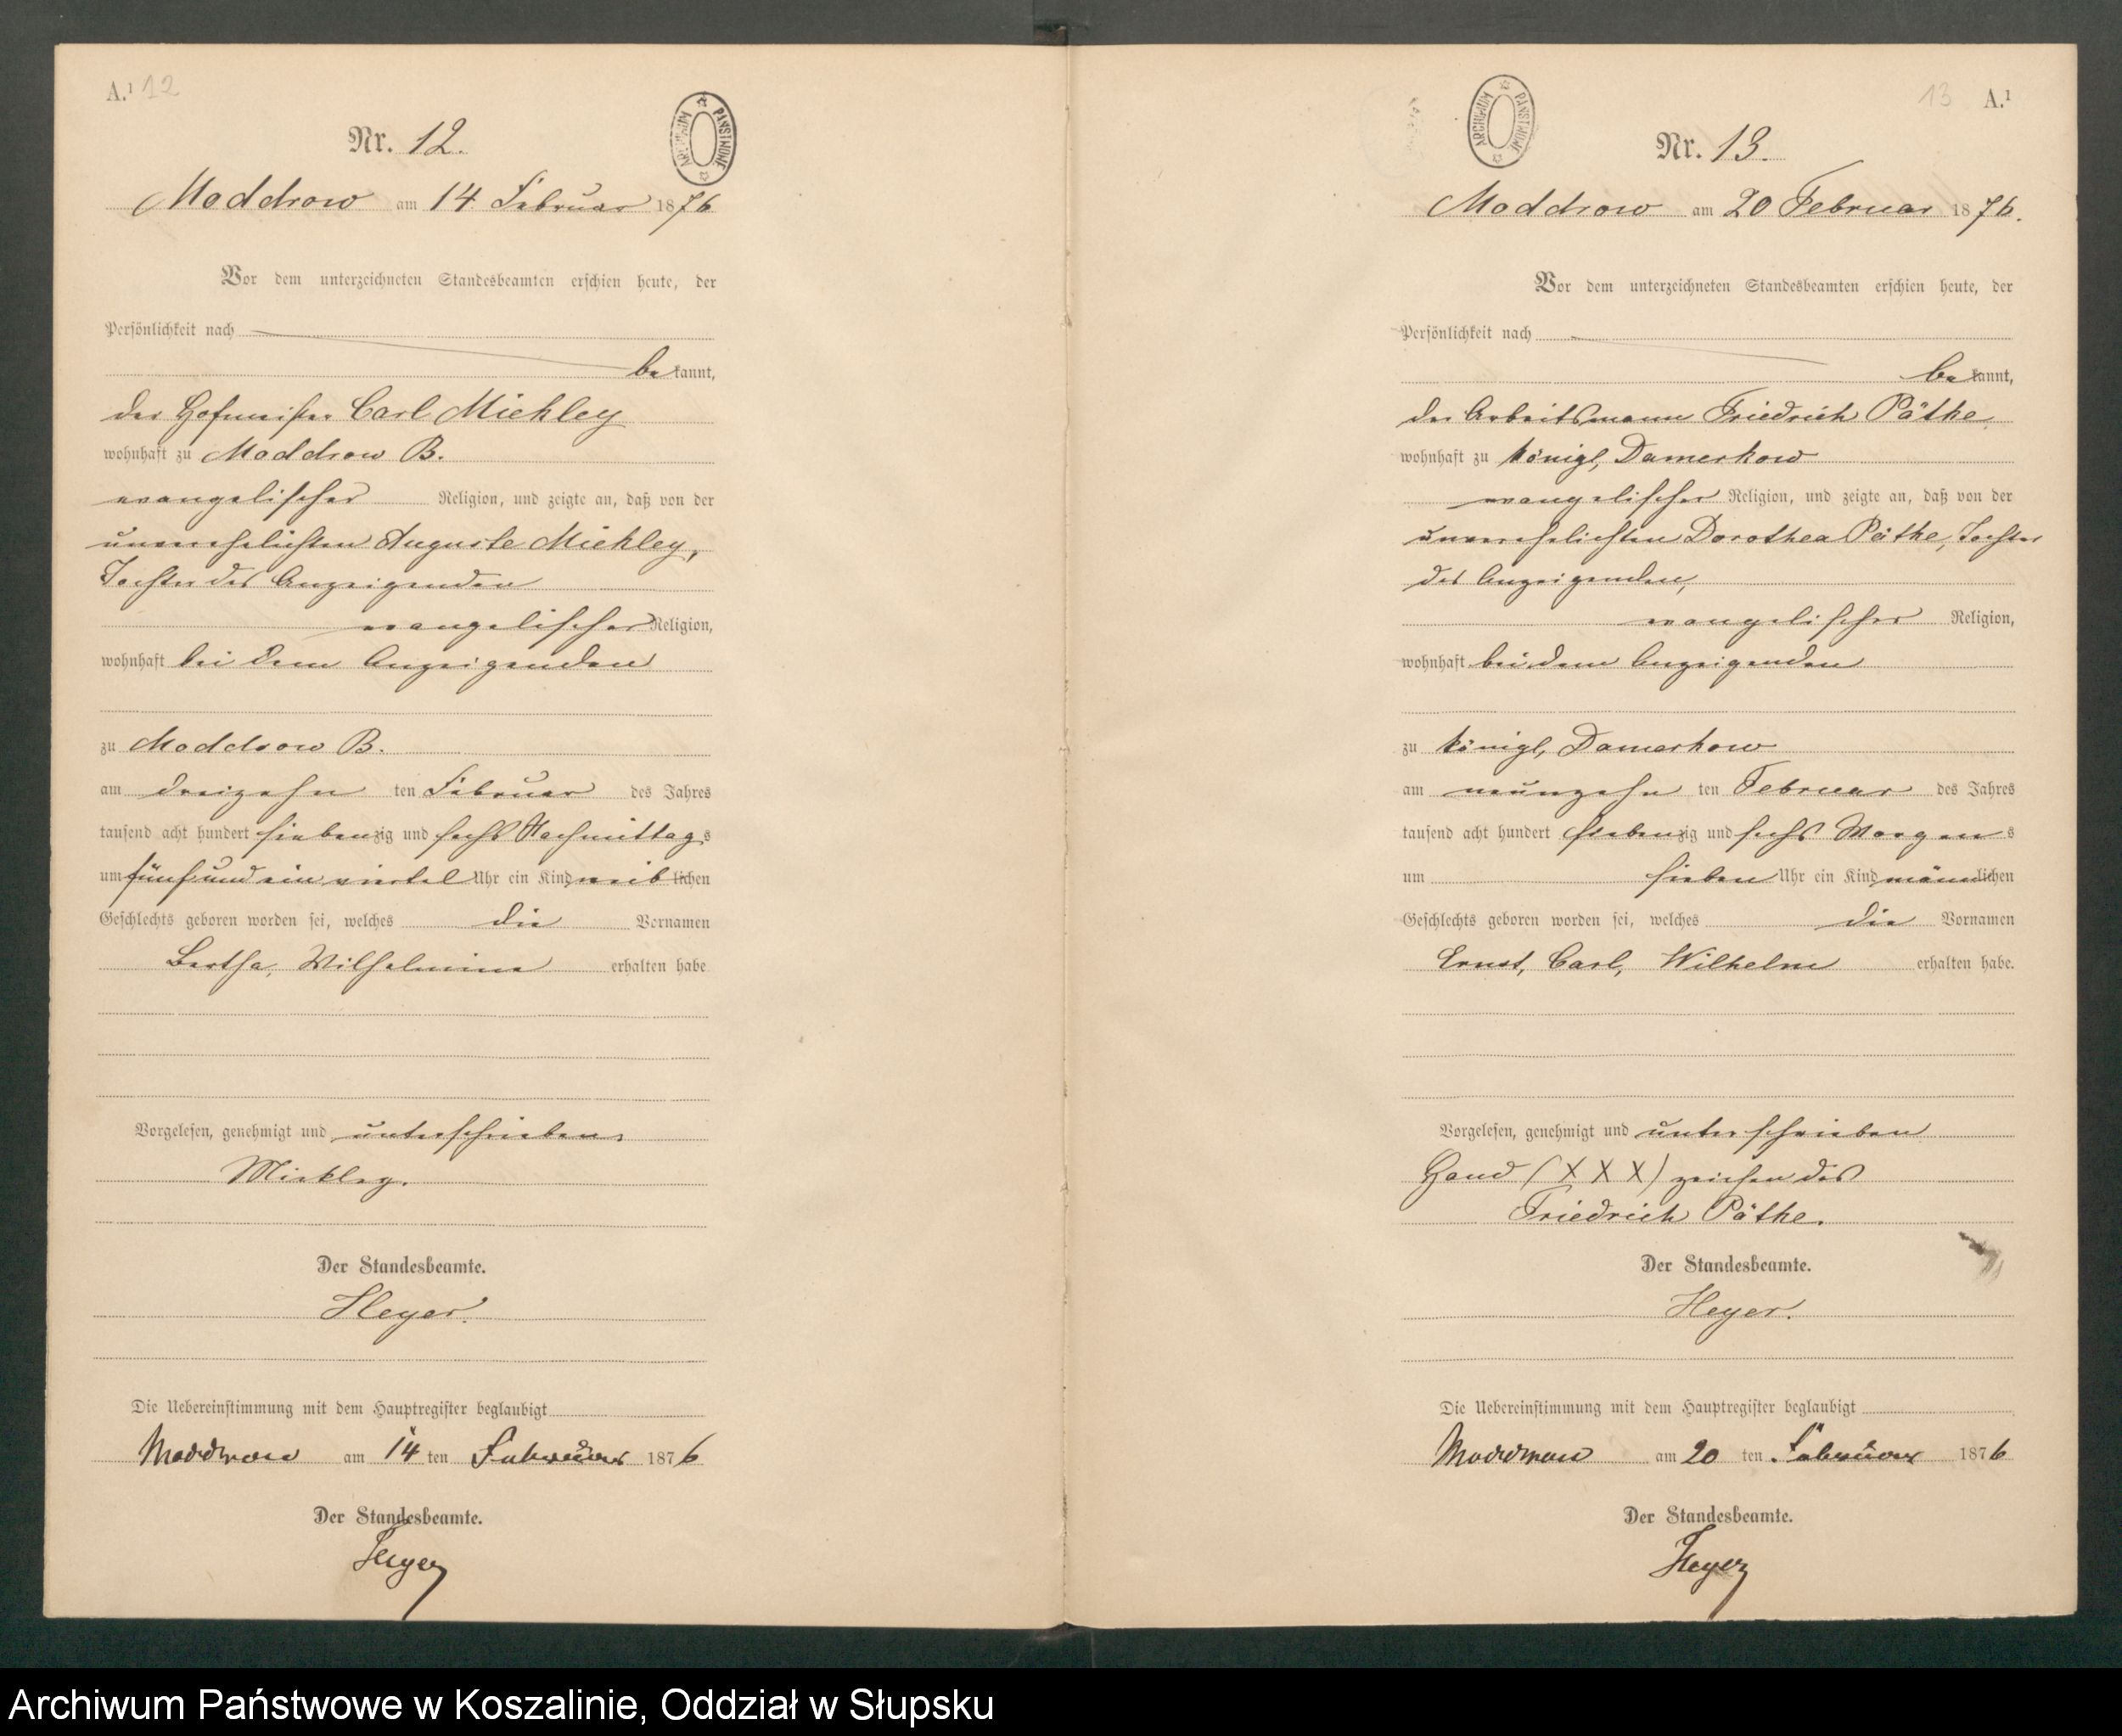 A.¹ 12
ARCHIWUM PAŃSTWOWE
Nr. 12.
Moddrow am 14 Februar 1876
Vor dem unterzeichneten Standesbeamten erschien heute, der
Persönlichkeit nach
bekannt,
der Hofmeister Carl Miekley
wohnhaft zu Moddrow B.
evangelischer Religion, und zeigte an, daß von der
unverehelichten Auguste Miekley,
Tochter des Anzeigenden
evangelischer Religion,
wohnhaft bei dem Anzeigenden
zu Moddrow B.
am dreizehn ten Februar des Jahres
tausend acht hundert siebenzig und sechs Nachmittags
um fünf und ein viertel Uhr ein Kind weiblichen
Geschlechts geboren worden sei, welches die Vornamen
Bertha, Wilhelmine erhalten habe
Vorgelesen, genehmigt und unterschrieben
Miekley.
Der Standesbeamte.
Heyer.
Die Uebereinstimmung mit dem Hauptregister beglaubigt
Moddrow am 14 ten Februar 1876
Der Standesbeamte.
Heyer
13 A.¹
ARCHIWUM PAŃSTWOWE
Nr. 13.
Moddrow am 20 Februar 1876.
Vor dem unterzeichneten Standesbeamten erschien heute, der
Persönlichkeit nach
bekannt,
der Arbeitsmann Friedrich Päthe,
wohnhaft zu königl, Damerkow
evangelischer Religion, und zeigte an, daß von der
unverehelichten Dorothea Päthe, Tochter
des Anzeigenden,
evangelischer Religion,
wohnhaft bei dem Anzeigenden
zu königl, Damerkow
am neunzehn ten Februar des Jahres
tausend acht hundert siebenzig und sechs Morgens
um sieben Uhr ein Kind männlichen
Geschlechts geboren worden sei, welches die Vornamen
Ernst, Carl, Wilhelm erhalten habe.
Vorgelesen, genehmigt und unterschrieben
Hand (X X X) zeichen des
Friedrich Päthe.
Der Standesbeamte.
Heyer.
Die Uebereinstimmung mit dem Hauptregister beglaubigt
Moddrow am 20 ten Februar 1876
Der Standesbeamte.
Heyer
Archiwum Państwowe w Koszalinie, Oddział w Słupsku